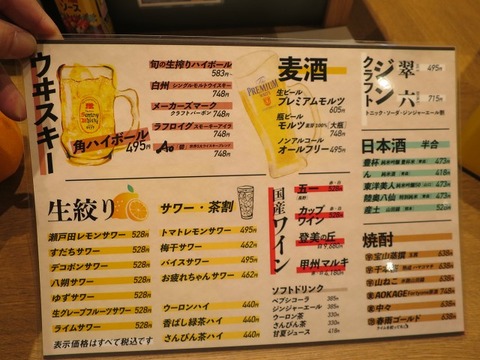 ウヰスキー
角ハイボール 495円
旬の生搾りハイボール 583円～
白州 シングルモルトウイスキー 748円
メーカーズマーク クラフトバーボン 748円
ラフロイグ スモーキーアイラ 748円
Ao 748円
麦酒
生ビール
プレミアムモルツ 605円
瓶ビール
モルツ 麦芽100% [大瓶] 748円
ノンアルコール
オールフリー 495円
クラフトジン
翠 495円
六 715円
トニック・ソーダ・ジンジャーエール割
日本酒 半合
豊杯 473円
ん 418円
東洋美人 473円
陸奥八仙 473円
生絞り
瀬戸田レモンサワー 528円
すだちサワー 528円
デコポンサワー 528円
八朔サワー 528円
ゆずサワー 528円
生グレープフルーツサワー 528円
ライムサワー 528円
表示価格はすべて税込です
サワー・茶割
トマトレモンサワー 495円
梅干サワー 462円
バイスサワー 495円
お疲れちゃんサワー 462円
ウーロンハイ 440円
香ばし緑茶ハイ 440円
さんぴん茶ハイ 440円
国産ワイン
五一
カップワイン 528円
登美の丘
甲州マルキ
ソフトドリンク
ペプシコーラ 385円
ジンジャーエール 385円
ウーロン茶 330円
さんぴん茶 330円
甘夏ジュース 418円
焼酎
宝山蒸撰 638円
山ねこ 638円
AOKAGE 748円
中々 638円
春雨ゴールド 638円